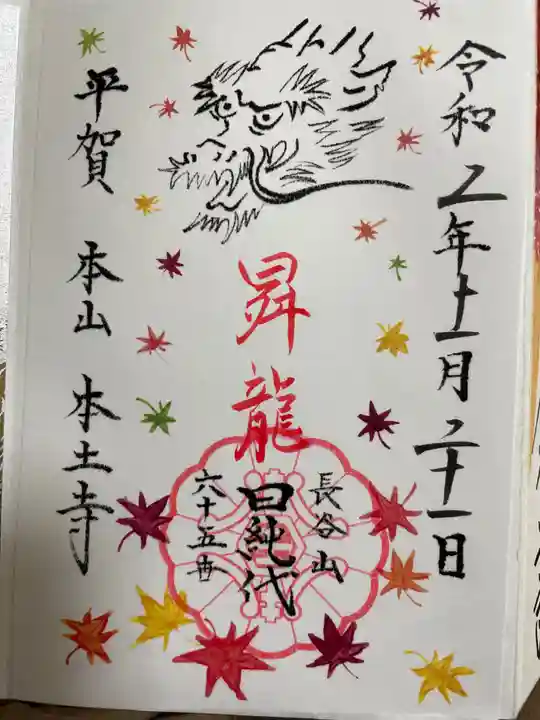 令和2年十一月二十一日
昇龍
長谷山
日純代
六十五世
平賀 本山 本土寺